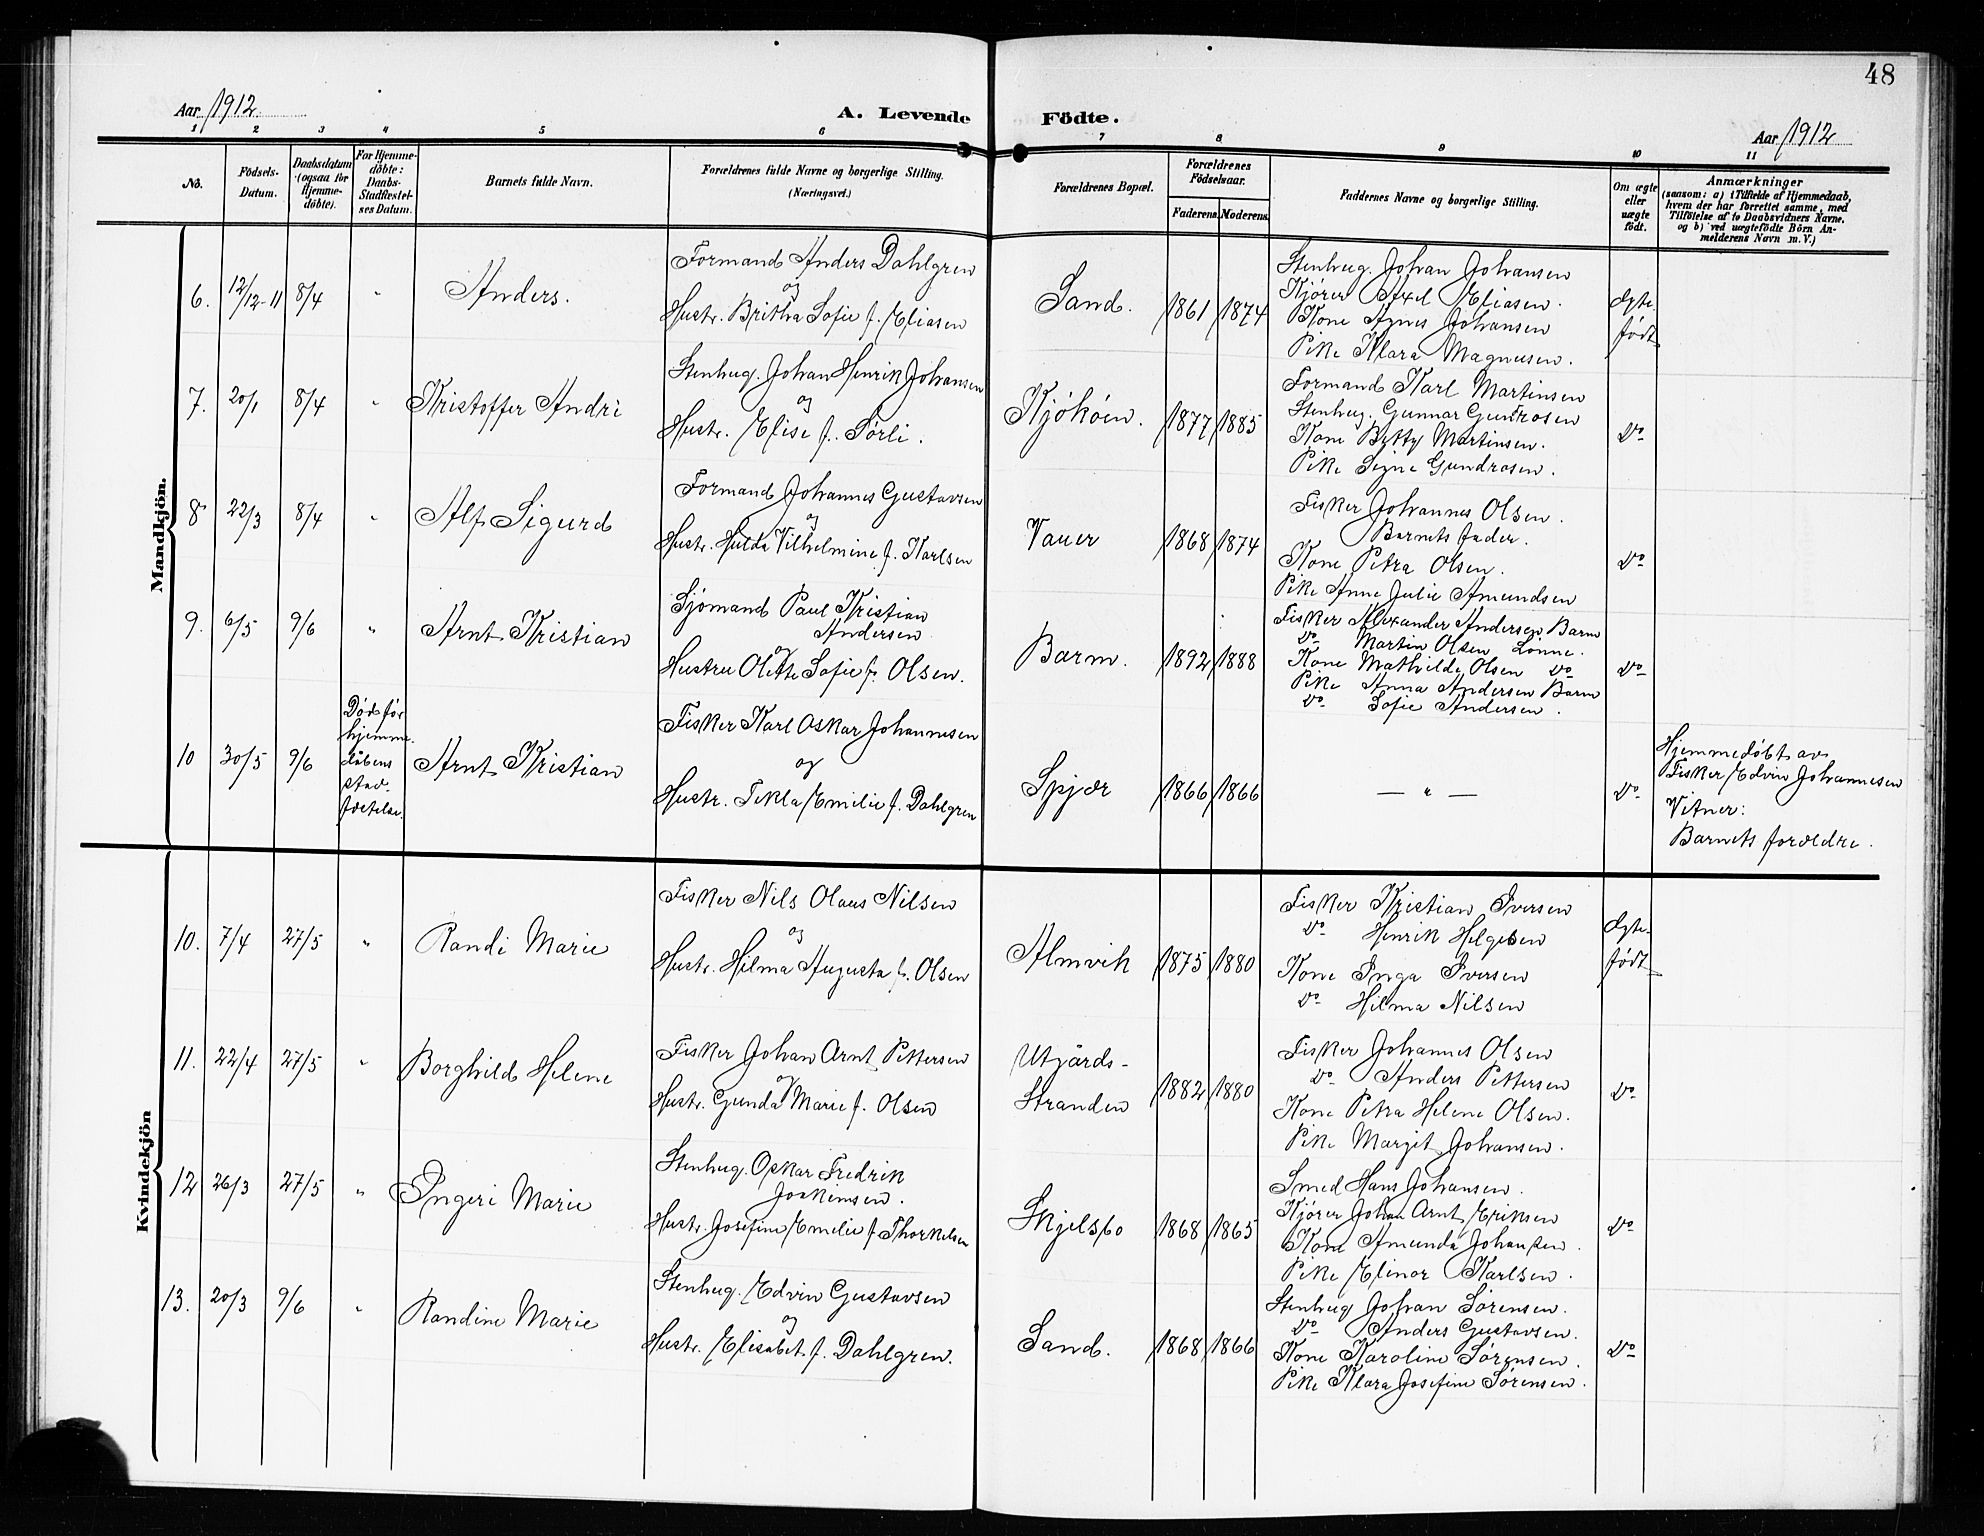 48
Aar 1912
A. Levende Födte.
Aar 1912
1 2 3 4 5 6 7 8 9 10 11
No.
Födsels-
Datum.
Daabsdatum
(ogsaa for
Hjemme-
döbte).
For Hjemme-
döbte:
Daabs-
Stadfæstel-
ses Datum.
Barnets fulde Navn.
Forældrenes fulde Navne og borgerlige Stilling.
(Næringsvei.)
Forældrenes Bopæl.
Forældrenes
Födselsaar.
Faderens. Moderens.
Faddernes Navne og borgerlige Stilling.
Om ægte
eller
uægte
født.
Anmærkninger
(saasom: a) i Tilfælde af Hjemmedaab,
hvem der har forrettet samme, med
Tilföielse af to Daabsvidners Navne,
og b) ved uægtefödte Börn An-
melderens Navn m. V.)
Mandkjön.
6. 12/12-11 8/4 " Anders.
Formand Anders Dahlgren
og
Hustr. Britha Sofie f. Eliasen
Sand. 1861 1874
Stenhug. Johan Johansen
Kjører Axel Eliasen.
Kone Agnes Johansen
Pike Klara Magnusen.
Ægte-
født
7. 20/1 8/4 " Kristoffer Andri
Stenhug. Johan Henrik Johansen
og
Hustr. Elise f. Sørli.
Kjøkøen. 1877 1885
Formand Karl Martinsen
Stenhug. Gunnar Gundrosen
Kone Betty Martinsen.
Pike Signe Gundrosen.
Do
8 22/3 8/4 " Alf Sigurd
Formand Johannes Gustavsen
og
Hustr. Hulda Vilhelmine f. Karlsen
Vauer 1868 1874
Fisker Johannes Olsen.
Barnets fader.
Kone Petra Olsen.
Pike Anne Julie Amundsen
Do
9. 6/5 9/6 " Arnt Kristian
Sjømand Paul Kristian
Andersen
og
Hustru Olette Sofie f. Olsen.
Barm. 1892 1888
Fisker Alexander Andersen Barm
Do Martin Olsen Lønne.
Kone Mathilde Olsen Do
Pike Anna Andersen Barm
Do Sofie Andersen.
Do
10 30/5 9/6
Død før
hjemme-
dåbens
stad-
fæstelse.
Arnt Kristian
Fisker Karl Oskar Johannesen
og
Hustr. Tekla Emilie f. Dahlgren
Spjær 1866 1866 — " — Do
Hjemmedøbt av
Fisker Edvin Johannesen
Vitner:
Barnets forældre.
Kvindekjön
10. 7/4 27/5 " Randi Marie
Fisker Nils Olaus Nilsen
og
Hustr. Hilma Augusta f. Olsen
Almvik 1875 1880
Fisker Kristian Iversen
Do Henrik Helgesen
Kone Inga Iversen
Do Hilma Nilsen
Ægte-
født
11. 22/4 27/5 " Borghild Helene
Fisker Johan Arnt Pettersen
og
Hustr. Gunda Marie f. Olsen
Utgårds-
Stranden 1882 1880
Fisker Johannes Olsen
Do Anders Pettersen
Kone Petra Helene Olsen.
Pike Margit Johansen.
Do
12 26/3 27/5 " Ingeri Marie
Stenhug. Oskar Fredrik
Joakimsen.
Hustr. Josefine Emilie f. Thorkelsen
Skjelsbo 1868 1865
Smed Hans Johansen.
Kjører Johan Arnt Eriksen
Kone Amunda Johansen.
Pike Elinor Karlsen.
Do
13. 20/3 9/6 " Randine Marie
Stenhug. Edvin Gustavsen
og
Hustr. Elisabet f. Dahlgren.
Sand. 1868 1866
Stenhug Johan Sørensen.
Do Anders Gustavsen.
Kone Karoline Sørensen.
Pike Klara Josefine Sørensen.
Do